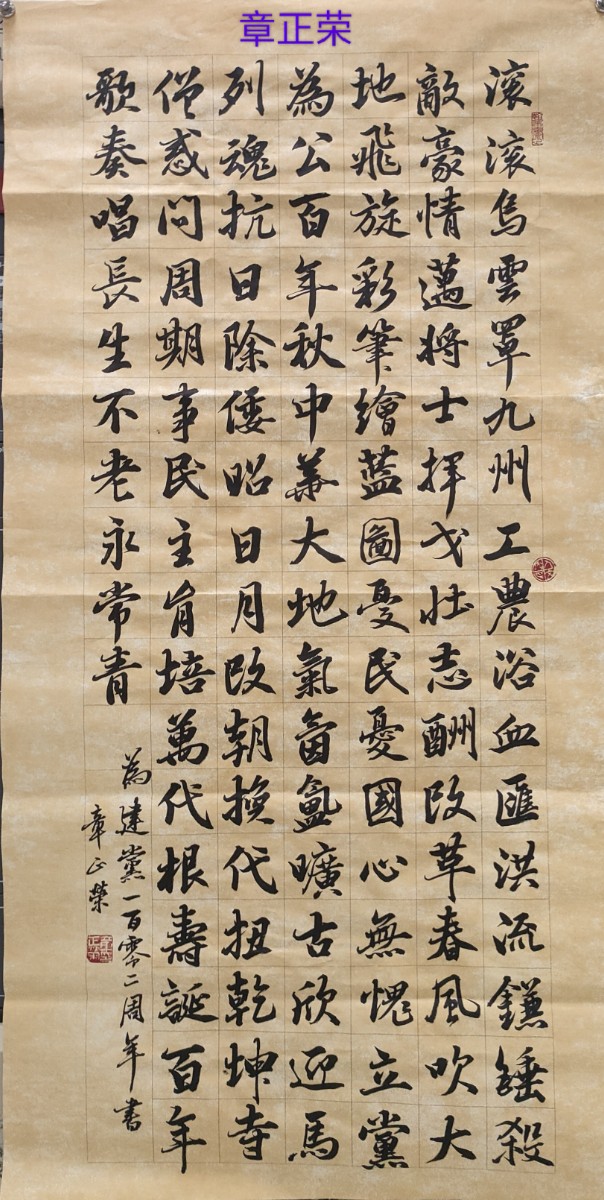 章正荣
滚滚烏雲罩九州工農浴血匯洪流鐮錘殺
敵豪情邁將士揮戈壯志酬改革春風吹大
地飛旋彩筆繪藍圖憂民憂國心無愧立黨
為公百年秋中華大地氣氤氳曠古欣迎馬
列魂抗日除倭昭日月改朝換代扭乾坤寺
僧惑問周期事民主肯培萬代根壽誕百年
歌奏唱長生不老永常青
為建黨一百零二周年書
章正榮